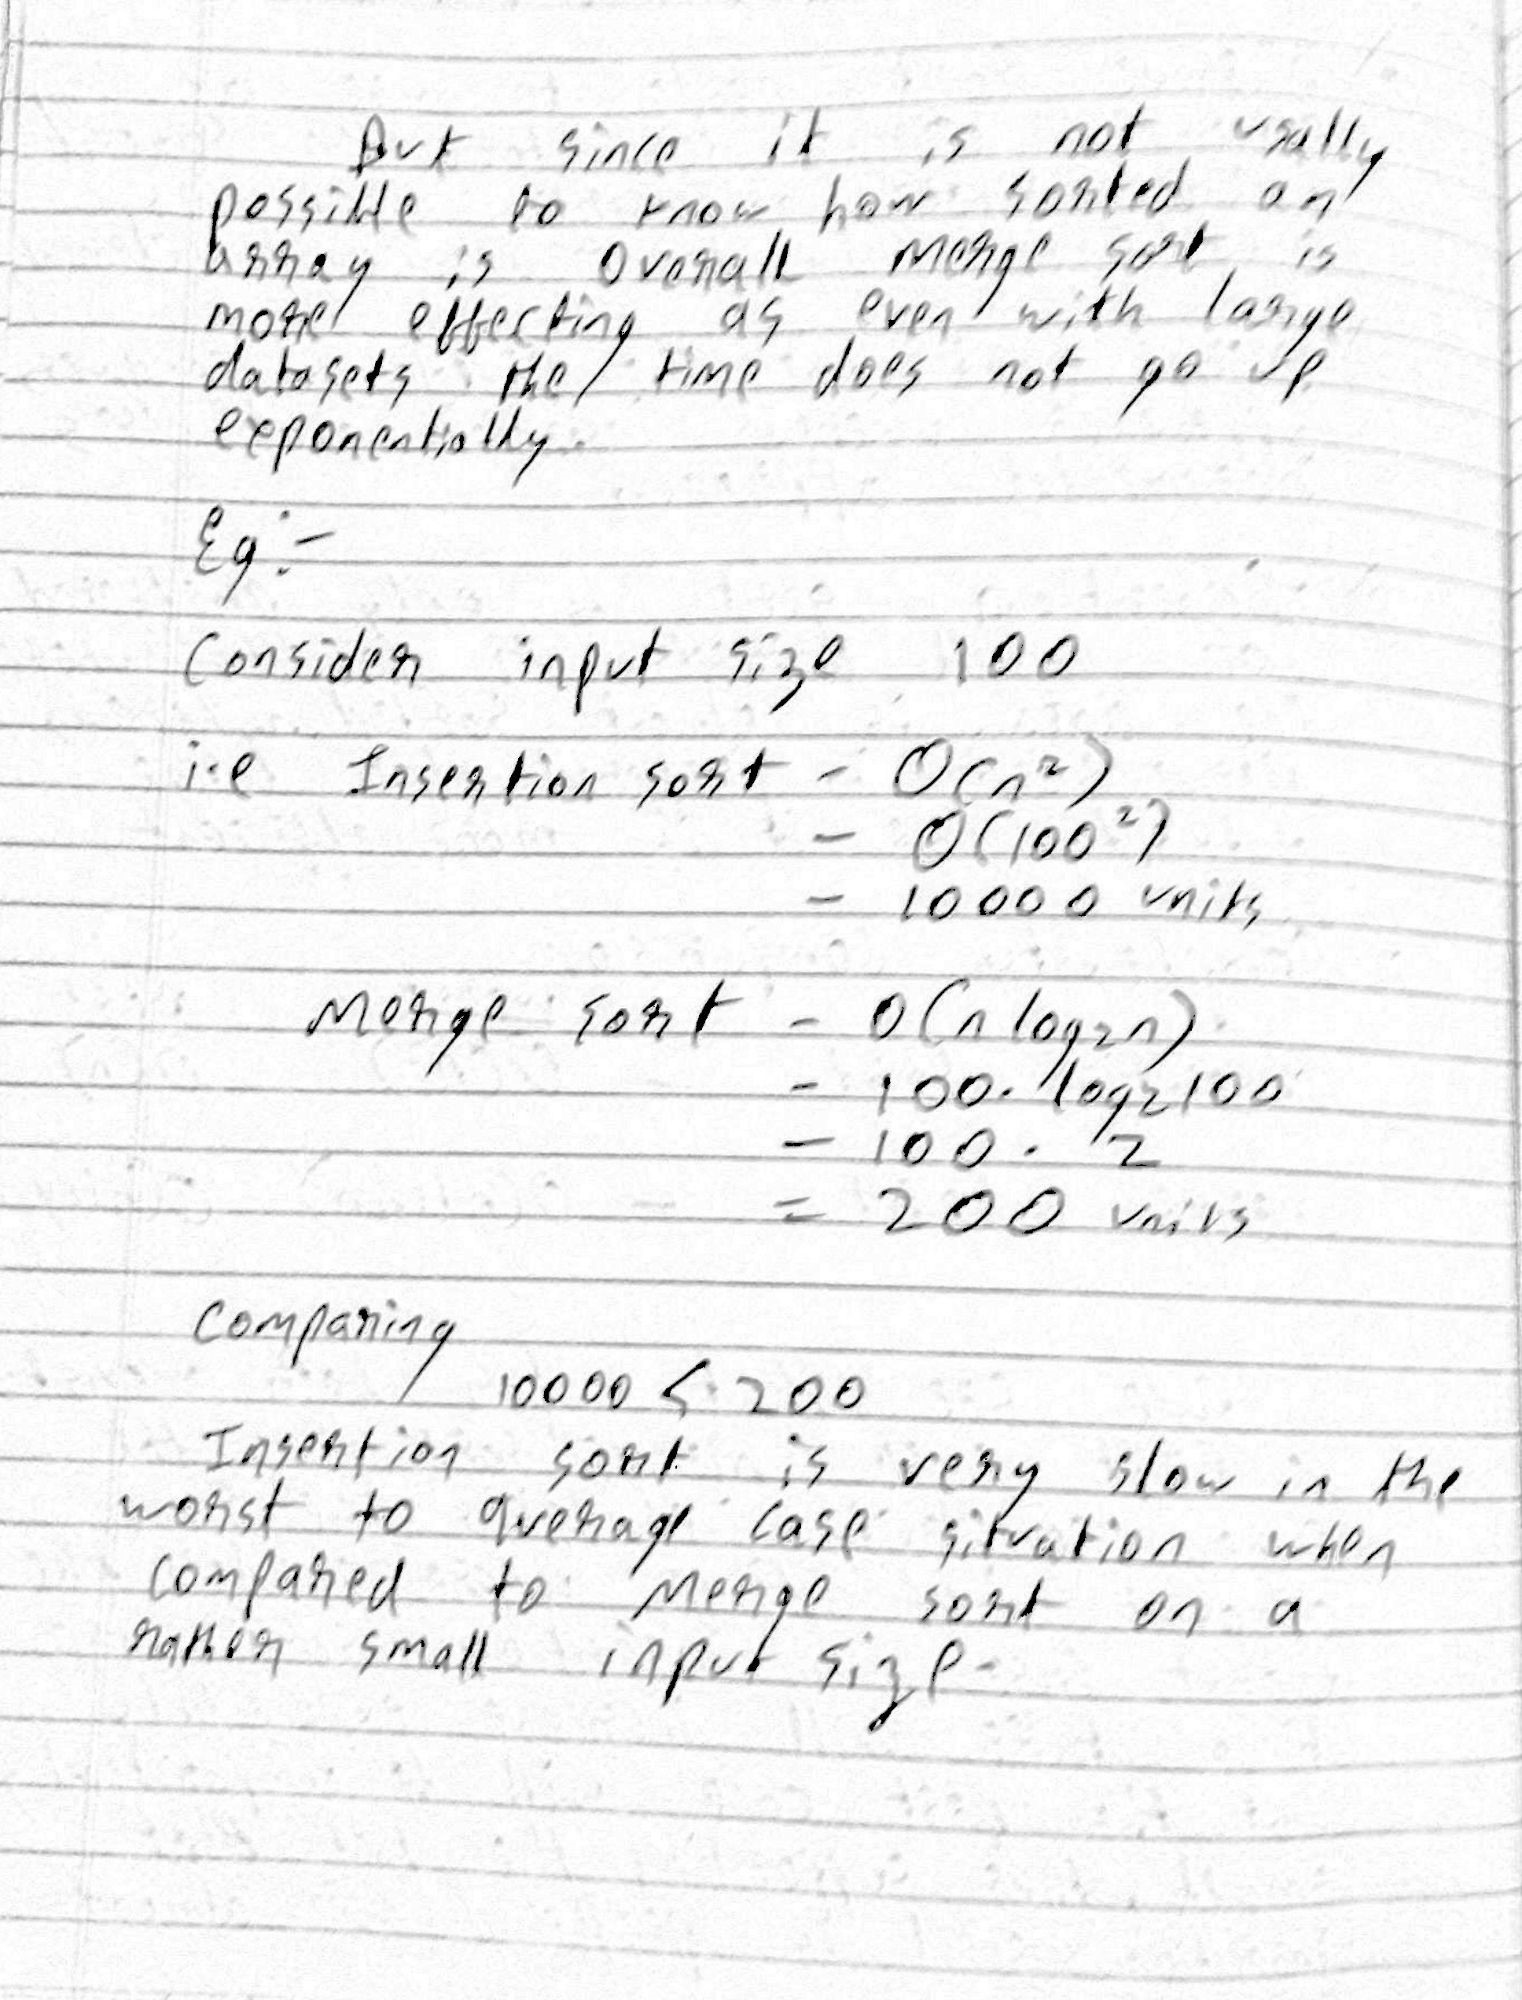 But since it is not usally
possible to know how sorted an
array is overall merge sort is
more effecting as even with large
datasets the time does not go up
exponentially.
Eg :-
Consider input size 100
i.e Insertion sort - O(n²)
- O(100²)
- 10000 units
Merge sort - O(n log₂n)
- 100. log₂100
- 100 . 2
= 200 units
Comparing
10000 < 200
Insertion sort is very slow in the
worst to average case situation when
compared to Merge sort on a
rather small input size.